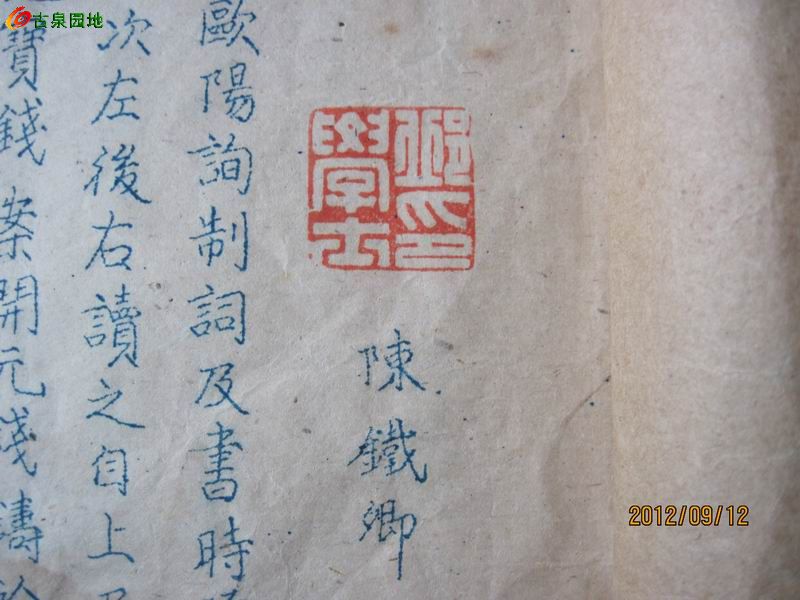 古泉园地
印
學士
陳鐵卿
歐陽詢制詞及書時
次左後右讀之自上
寶錢 案開元錢鑄
2012/09/12